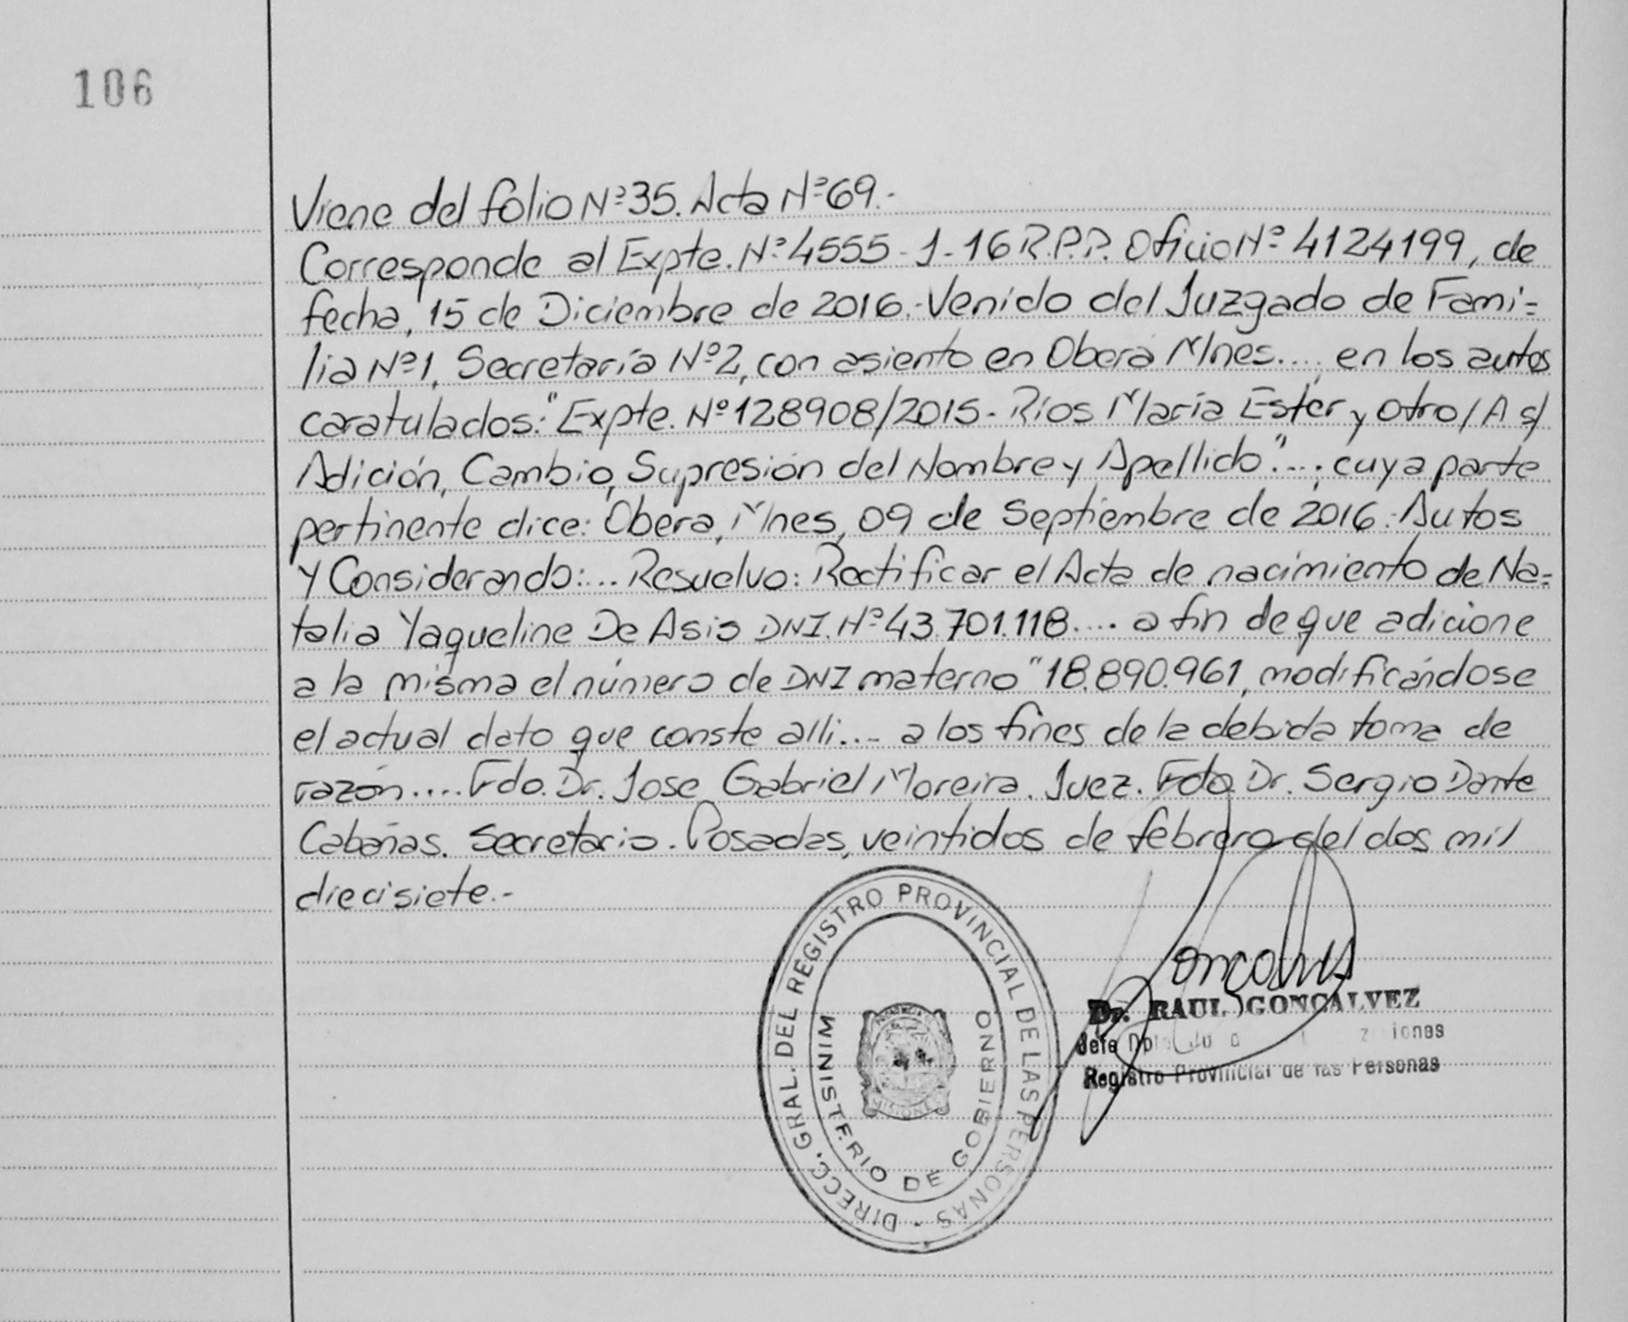 106
Viene del folio Nº35. Acta Nº69.-
Corresponde al Expte. Nº4555-1-16 R.P.P. Oficio Nº 4124199, de
fecha, 15 de Diciembre de 2016.-Venido del Juzgado de Fami=
lia Nº1, Secretaría Nº2, con asiento en Obera Mnes...., en los autos
caratulados:"Expte. Nº128908/2015- Ríos María Ester y otro/A s/
Adición, Cambio, Supresión del Nombre y Apellido"...; cuya parte
pertinente dice: Obera, Mnes, 09 de Septiembre de 2016.-Autos
Y Considerando:... Resuelvo: Rectificar el Acta de nacimiento de Na=
talia Yaqueline De Asis DNI. Nº43.701.118.... a fin de que adicione
a la misma el número de DNI materno "18.890.961, modificándose
el actual dato que conste alli.... a los fines de la debida toma de
razón.... Fdo. Dr. Jose Gabriel Moreira. Juez. Fdo. Dr. Sergio Dante
Cabañas. Secretario. Posadas, veintidos de febrero del dos mil
diecisiete.-
DIRECC. GRAL. DEL REGISTRO PROVINCIAL DE LAS PERSONAS -
MINISTERIO DE GOBIERNO
MISIONES
Dr. RAUL GONCALVEZ
Jefe
Registro Provincial de las Personas